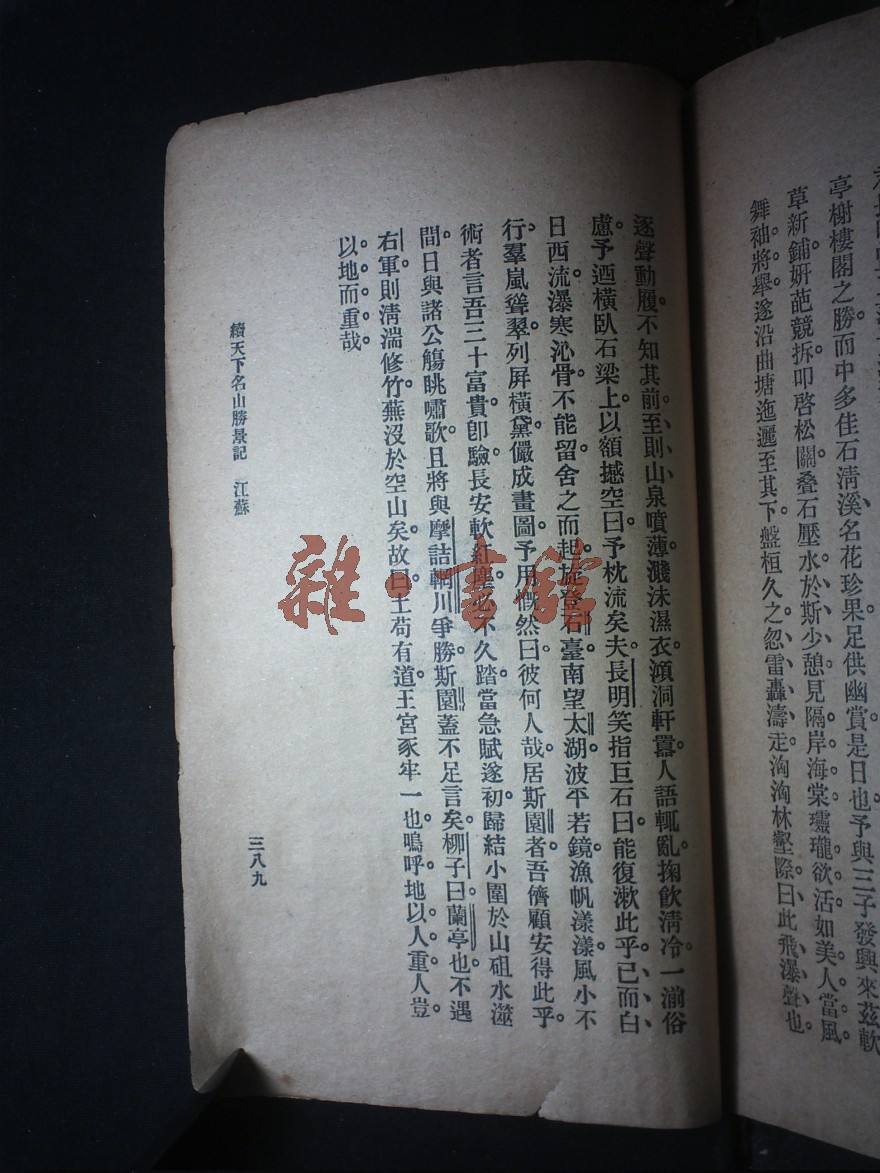 亭榭樓閣之勝。而中多佳石清溪名花珍果足供幽賞是日也予與三子發興來茲軟
草新鋪妍葩競拆叩啓松關叠石壓水於斯少憩見隔岸海棠瓏欲活如美人當風
舞袖將舉。遂沿曲塘迤邐至其下盤桓久之忽雷轟濤走洶洶林壑際曰此飛瀑聲也
逐聲動履。不知其前至則山泉噴薄濺沬濕衣澒洞軒囂人語輒亂掬飲清冷一湔俗
慮。予迺橫臥石梁上以額撼空曰予枕流矣夫長明笑指巨石曰能復漱此乎已而白
日西流瀑寒沁骨不能留舍之而起旋登石臺南望太湖波平若鏡漁帆漾漾風小不
行。羣嵐聳翠列屏橫黛儼成畫圖予用慨然曰彼何人哉居斯園者吾儕顧安得此乎。
術者言吾三十富貴卽驗長安軟紅塵必不久踏當急賦遂初歸結小園於山砠水澨
間。日與諸公觴眺嘯歌且將與摩詰輞川爭勝斯園蓋不足言矣柳子曰蘭亭也不遇
右軍則淸湍修竹蕪沒於空山矣故曰王苟有道王宮豕牢一也嗚呼地以人重人豈
以地而重哉。
續天下名山勝景記 江蘇
三八九
雜·書館